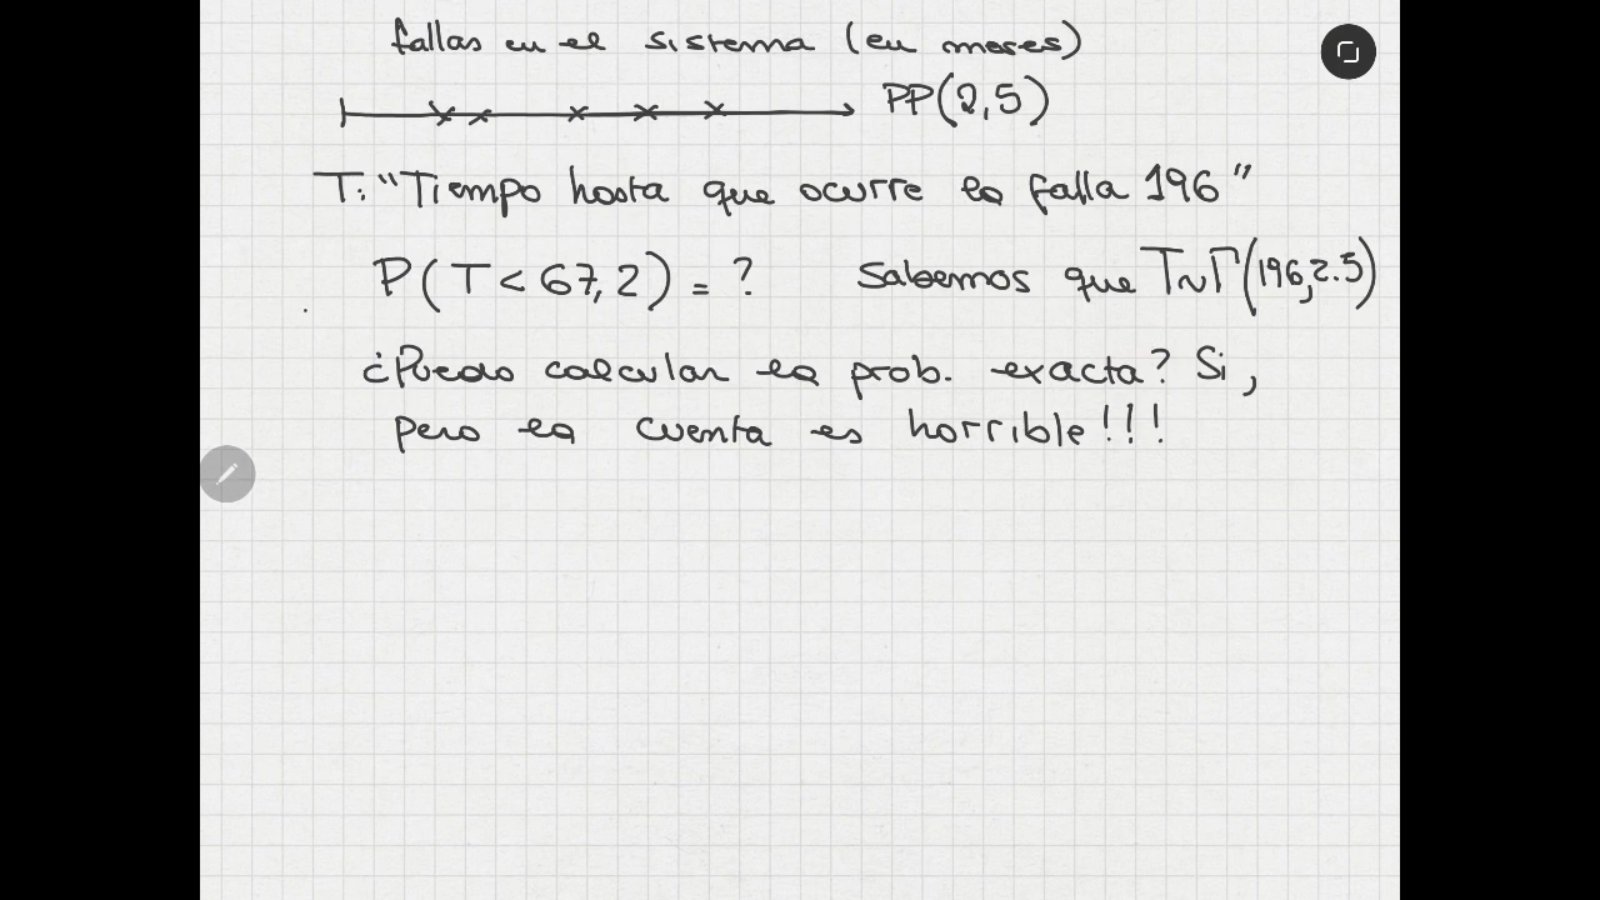 fallas en el sistema (en meses)
PP(2,5)
T: "Tiempo hasta que ocurre la falla 196"
P(T < 67,2) = ? Sabemos que T~Γ(196,2.5)
¿Puedo calcular la prob. exacta? Si,
pero la cuenta es horrible!!!